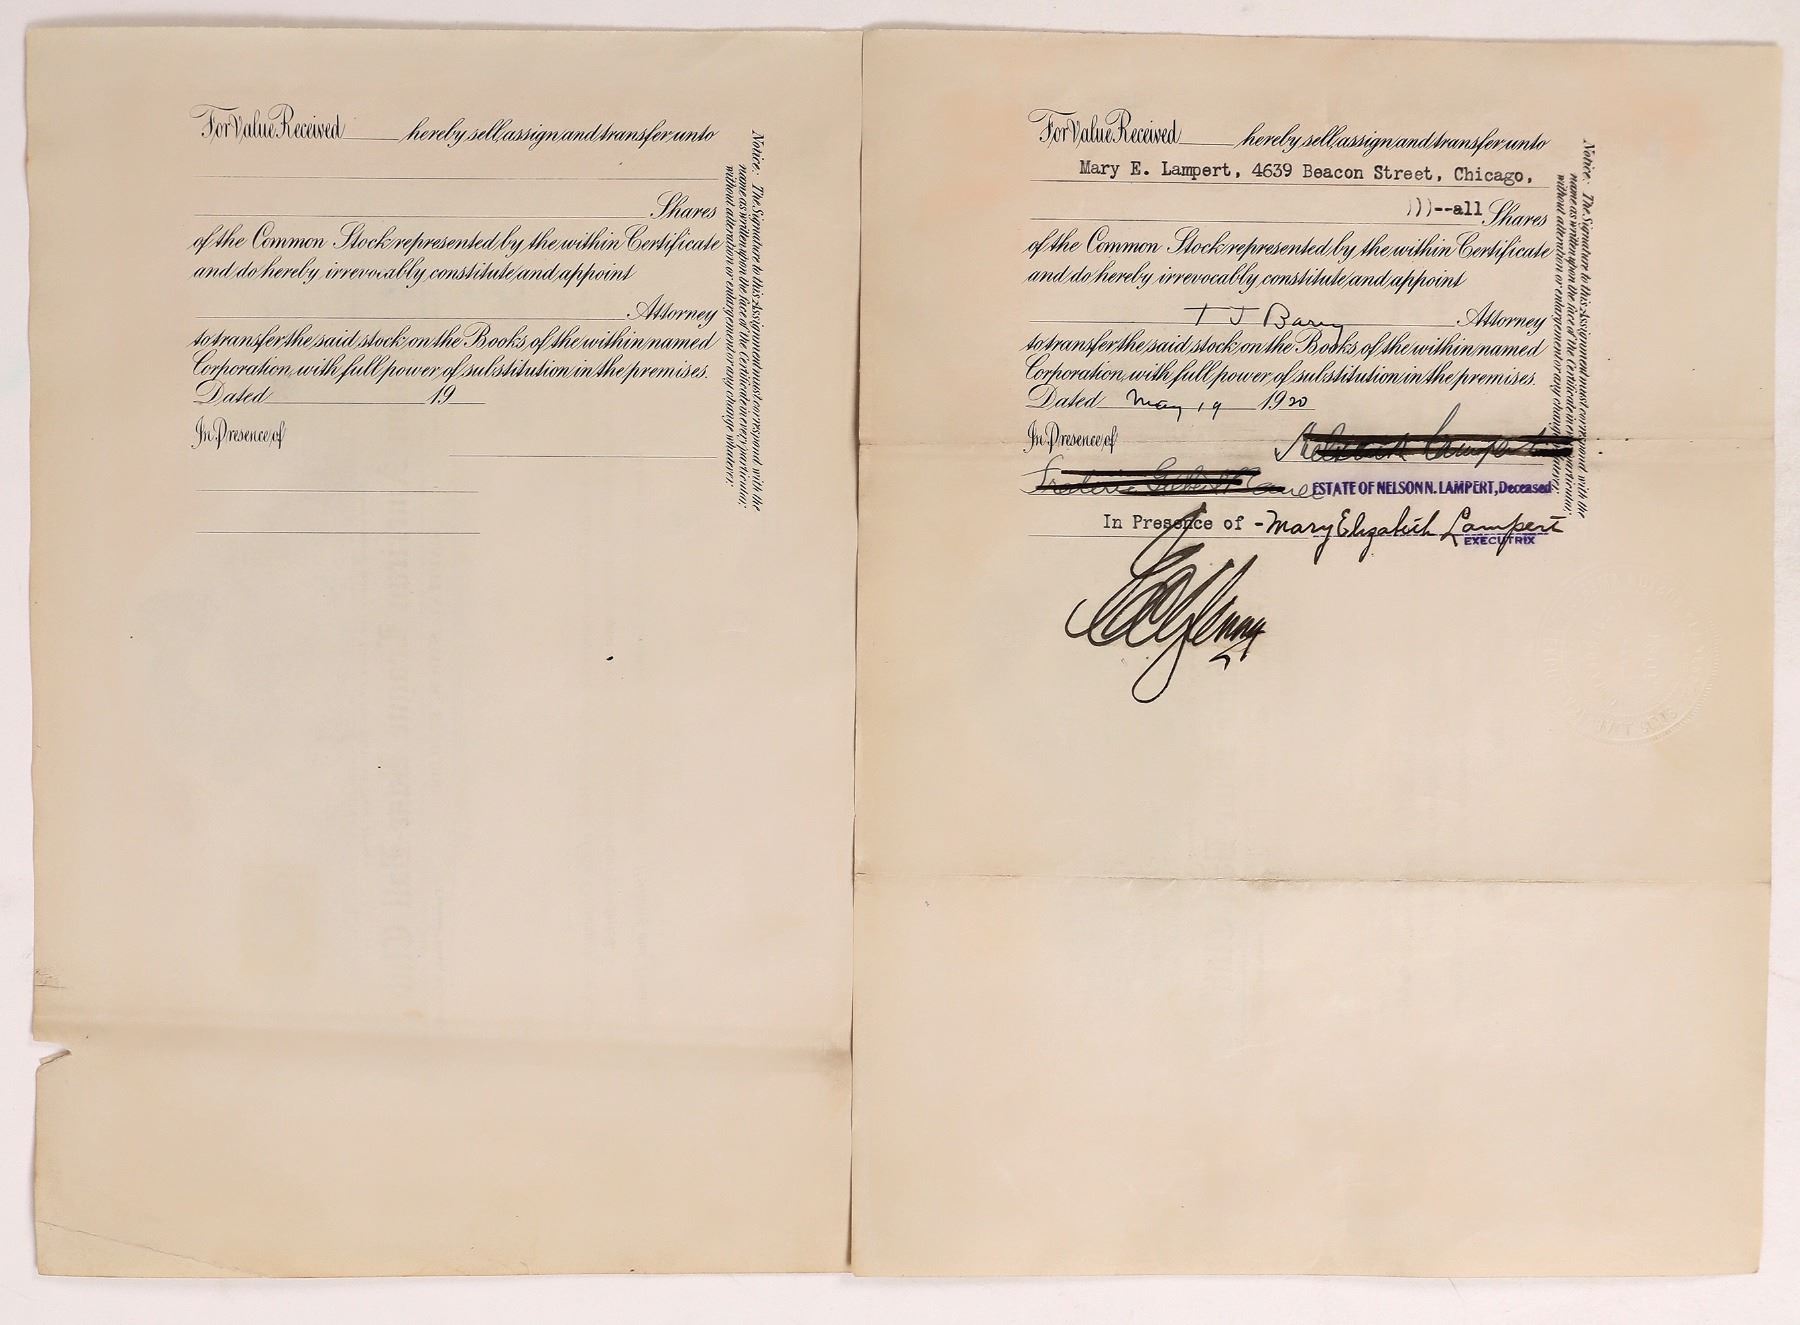 For Value Received ____ hereby sell, assign and transfer unto
Shares
of the Common Stock represented by the within Certificate
and do hereby irrevocably constitute and appoint
Attorney
to transfer the said stock on the Books of the within named
Corporation, with full power of substitution in the premises.
Dated ____ 19
In Presence of
Notice: The Signature to this Assignment must correspond with the
name as written upon the face of the Certificate in every particular,
without alteration or enlargement or any change whatever.
For Value Received ____ hereby sell, assign and transfer unto
Mary E. Lampert, 4639 Beacon Street, Chicago,
)))--all Shares
of the Common Stock represented by the within Certificate
and do hereby irrevocably constitute and appoint
T J Barry Attorney
to transfer the said stock on the Books of the within named
Corporation, with full power of substitution in the premises.
Dated May 19 1920
In Presence of
ESTATE OF NELSON N. LAMPERT, Deceased
In Presence of - Mary Elizabeth Lampert
EXECUTRIX
Notice: The Signature to this Assignment must correspond with the
name as written upon the face of the Certificate in every particular,
without alteration or enlargement or any change whatever.